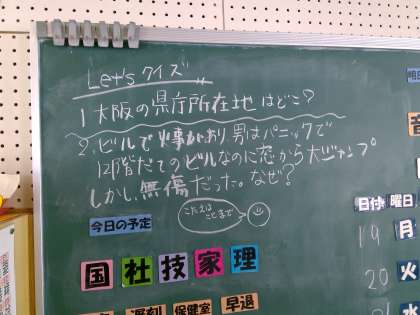 Let's クイズ
1 大阪の県庁所在地はどこ?
2. ビルで火事がおり、男はパニックで
12階だてのビルなのに窓から大ジャンプ
しかし、無傷だった。なぜ?
こたえは
ことまで
今日の予定
国 社 技 家 理
遅刻 保健室 早退
日付 曜日
19 月
20 火
水